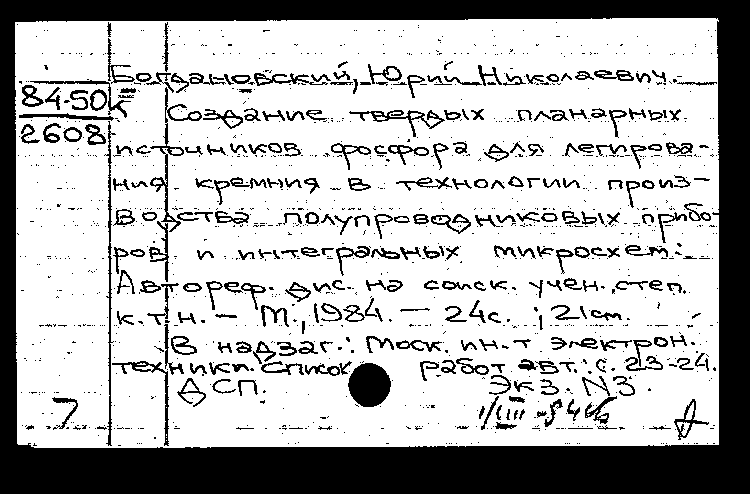 Богдановский, Юрий Николаевич.
84-50к
2608
Создание твердых планарных
источников фосфора для легирова-
ния кремния в технологии произ-
водства полупроводниковых прибо-
ров и интегральных микросхем:
Автореф. дис. на соиск. учен. степ.
к.т.н. – М., 1984. – 24с. ; 21см.
В надзаг.: Моск. ин-т электрон.
техники. Список работ авт.: с. 23-24.
ДСП. Экз. N3.
7